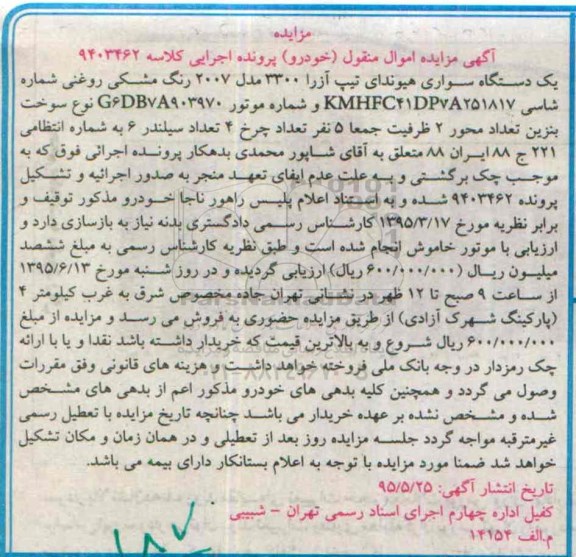 مزایده
آگهی مزایده اموال منقول (خودرو) پرونده اجرایی کلاسه ۹۴۰۳۴۶۲
یک دستگاه سواری هیوندای تیپ آزرا ۳۳۰۰ مدل ۲۰۰۷ رنگ مشکی روغنی شماره
شاسی KMHFC۴۱DP۷A۲۵۱۸۱۷ و شماره موتور G۶DB۷A۹۰۳۹۷۰ نوع سوخت
بنزین تعداد محور ۲ ظرفیت جمعا ۵ نفر تعداد چرخ ۴ تعداد سیلندر ۶ به شماره انتظامی
۲۲۱ ج ۸۸ ایران ۸۸ متعلق به آقای شاپور محمدی بدهکار پرونده اجرائی فوق که به
موجب چک برگشتی و به علت عدم ایفای تعهد منجر به صدور اجرائیه و تشکیل
پرونده ۹۴۰۳۴۶۲ شده و به استناد اعلام پلیس راهور ناجا خودرو مذکور توقیف و
برابر نظریه مورخ ۱۳۹۵/۳/۱۷ کارشناس رسمی دادگستری بدنه نیاز به بازسازی دارد و
ارزیابی با موتور خاموش انجام شده است و طبق نظریه کارشناس رسمی به مبلغ ششصد
میلیون ریال (۶۰۰/۰۰۰/۰۰۰ ریال) ارزیابی گردیده و در روز شنبه مورخ ۱۳۹۵/۶/۱۳
از ساعت ۹ صبح تا ۱۲ ظهر در نشانی تهران جاده مخصوص شرق به غرب کیلومتر ۴
(پارکینگ شهرک آزادی) از طریق مزایده حضوری به فروش می رسد و مزایده از مبلغ
۶۰۰/۰۰۰/۰۰۰ ریال شروع و به بالاترین قیمت که خریدار داشته باشد نقدا و یا با ارائه
چک رمزدار در وجه بانک ملی فروخته خواهد داشت و هزینه های قانونی وفق مقررات
وصول می گردد و همچنین کلیه بدهی های خودرو مذکور اعم از بدهی های مشخص
شده و مشخص نشده بر عهده خریدار می باشد چنانچه تاریخ مزایده با تعطیل رسمی
غیرمترقبه مواجه گردد جلسه مزایده روز بعد از تعطیلی و در همان زمان و مکان تشکیل
خواهد شد ضمنا مورد مزایده با توجه به اعلام بستانکار دارای بیمه می باشد.
تاریخ انتشار آگهی: ۹۵/۵/۲۵
کفیل اداره چهارم اجرای اسناد رسمی تهران - شبیبی
م.الف ۱۴۱۵۴